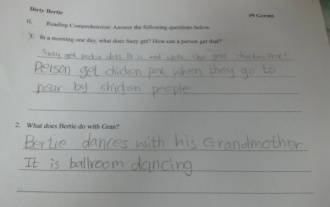 Dirty Bertie
#9 Germs
II. Reading Comprehension: Answer the following questions below.
1. In a morning one day, what does Suzy get? How can a person get that?
Suzy got
Person get chicken pox when they go to
near by chicken people
2. What does Bertie do with Gran?
Bertie dances with his Grandmother
It is ballroom dancing